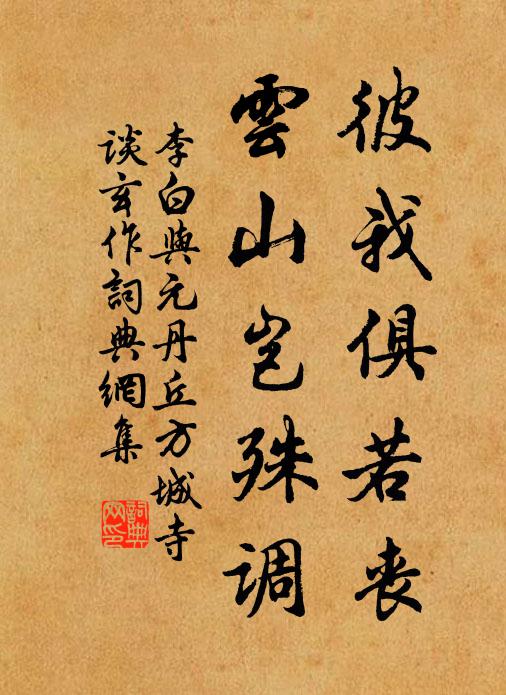 彼我俱若丧
雲山岂殊调
李白與元丹丘方城寺
谈玄作詞典網集
詞典
网印